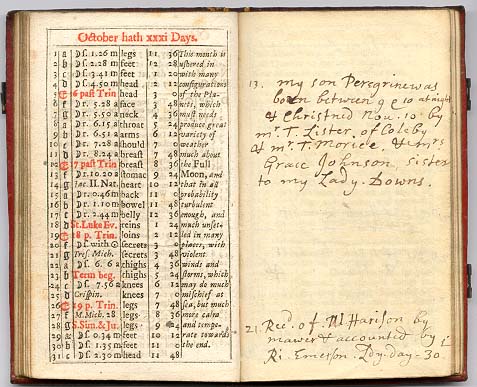 October hath xxxi Days.
1 a Df. 1.26 m legs 11 36 This month is
2 b Df. 2.28 m feet 1 20 ushered in
3 c Df. 3.41 m feet 1 20 with many
4 d Df. 4.50 m head 2 12 configurations
5 E 16 past Trin head 3 0 of the Pla-
6 f Dr. 5.28 a face 3 48 nets, which
7 g Dr. 5.50 a neck 4 36 must needs
8 a Dr. 6.15 a throat 5 24 produce great
9 b Dr. 6.51 a arms 6 12 variety of
10 c Dr. 7.28 a should 7 0 weather
11 d Dr. 8.24 a breast 7 48 much about
12 E 17 past Trin breast 8 36 the Full
13 f Dr. 10.20 a stomac 9 24 Moon, and
14 g Jac. II. Nat. heart 10 12 that in all
15 a Dr. 0.46 m back 11 0 probability
16 b Dr. 1.10 m bowel 11 48 turbulent
17 c Dr. 2.44 m belly 12 36 enough, and
18 d St. Luke Ev. reins 1 24 much unset-
19 E 18 p. Trin. loins 2 12 led in many
20 f Df. with ☉ secrets 3 0 places, with
21 g Tres. Mich. secrets 3 48 violent
22 a Df. 6. 6 a thighs 4 36 winds and
23 b Term beg. thighs 5 24 storms, which
24 c Df. 7.56 a knees 6 12 may do much
25 d Crispin. knees 7 0 mischief at
26 E 19 p. Trin. legs 7 48 sea, but much
27 f M. Mich. 28 legs 8 36 more calm
28 g S. Sim. & Ju. legs 9 24 and tempe-
29 a Df. 0.34 m feet 10 12 rate towards
30 b Df. 1.35 m feet 11 0 the end.
31 c Df. 2.30 m head 11 48
13. my son Peregrine was
born between 9 & 10 at night
& Christnd Nov. 10 by
mr. T. Lister, of Coleby
& mr. T. Morice, & mrs
Grace Johnson sister
to my Lady. Downs.
21. Recd. of M Harison by
mawer & accounted by
Ri. Emerson. Ldy-Day - 30.